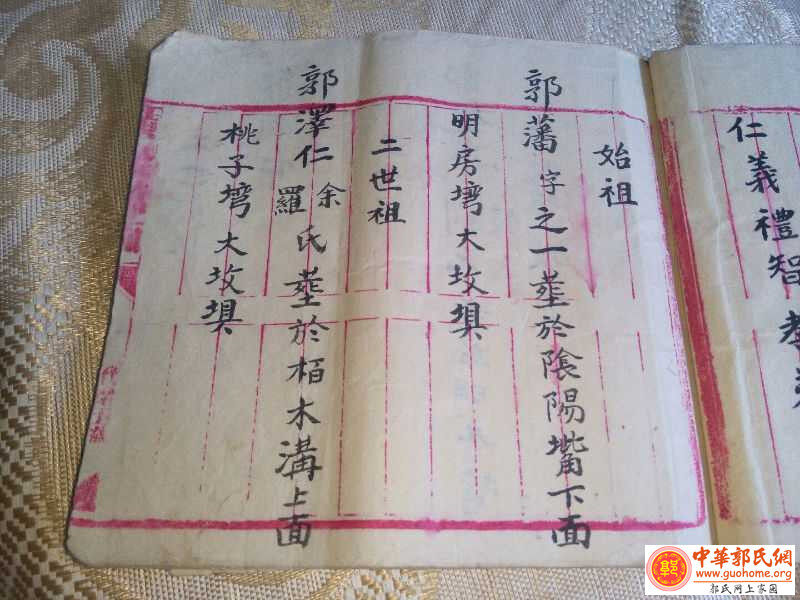 仁義禮智孝
始祖
郭藩字之一塟於陰陽嘴下面
明房塆大坟埧
二世祖
郭澤仁余羅氏塟於栢木溝上面
桃子塆大坟埧
中華郭氏網
www.guohome.org
郭氏网上家园